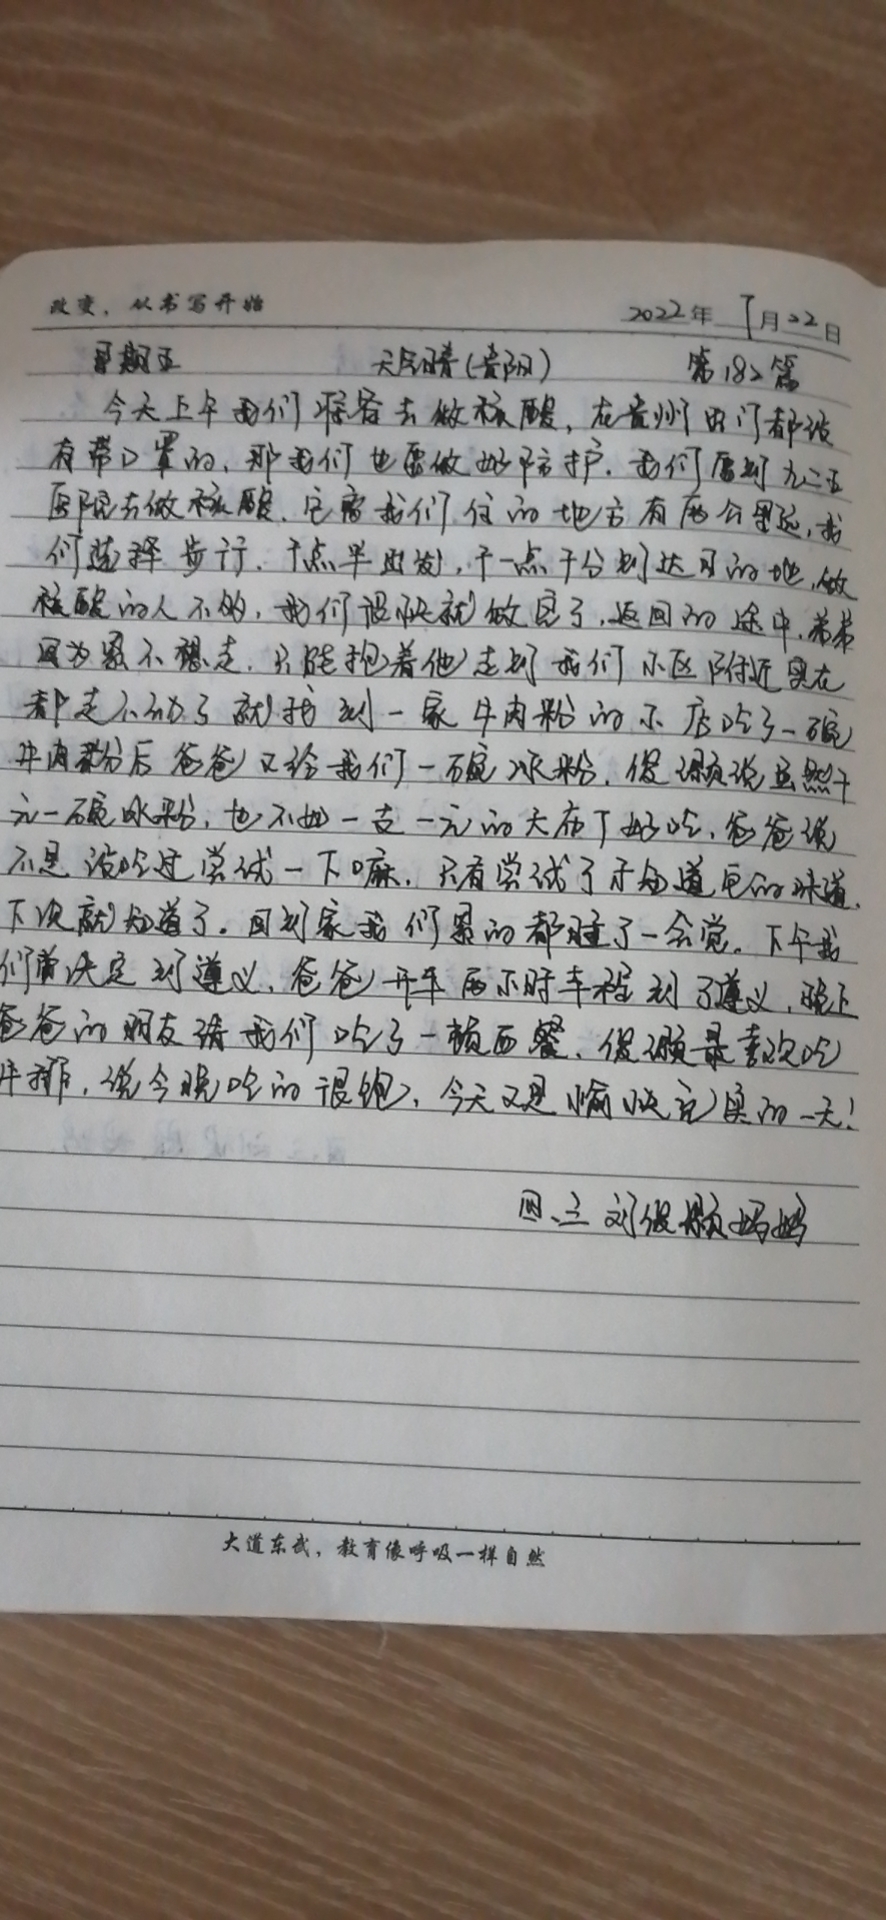 改变，从书写开始
2022年 7月22日
星期五 天气晴(贵阳) 第182篇
今天上午我们准备去做核酸，在贵州出门都没
有带口罩的，那我们也要做好防护，我们需到九二五
医院去做核酸，它离我们住的地方有两公里远，我
们选择步行，十点半出发，十一点十分到达目的地，做
核酸的人不多，我们很快就做完了，返回的途中，弟弟
因为累不想走，只能抱着他走到我们小区附近实在
都走不动了就找到一家牛肉粉的小店吃了一碗
牛肉粉后爸爸又给我们一碗冰粉，俊颢说虽然十
元一碗冰粉，也不如一支一元的天府丁好吃，爸爸说
不是没吃过尝试一下嘛，只有尝试了才知道它的味道，
下次就知道了。回到家我们累的都睡了一会觉。下午我
们决定到遵义，爸爸开车两小时车程到了遵义，晚上
爸爸的朋友请我们吃了一顿西餐，俊颢最喜欢吃
牛排，说今晚吃的很饱，今天又是愉快充实的一天！
四、三 刘俊颢妈妈
大道东武，教育像呼吸一样自然